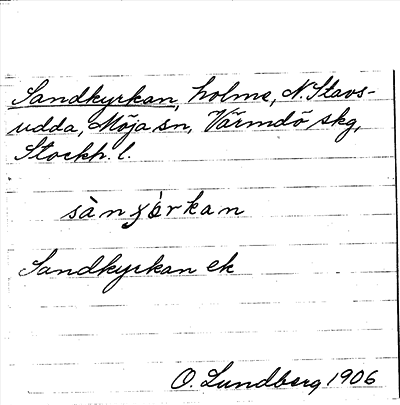 Sandkyrkan, holme, N. Stavs-
udda, Möja sn, Värmdö skg,
Stockh. l.
Sandkyrkan ek
O. Lundberg 1906